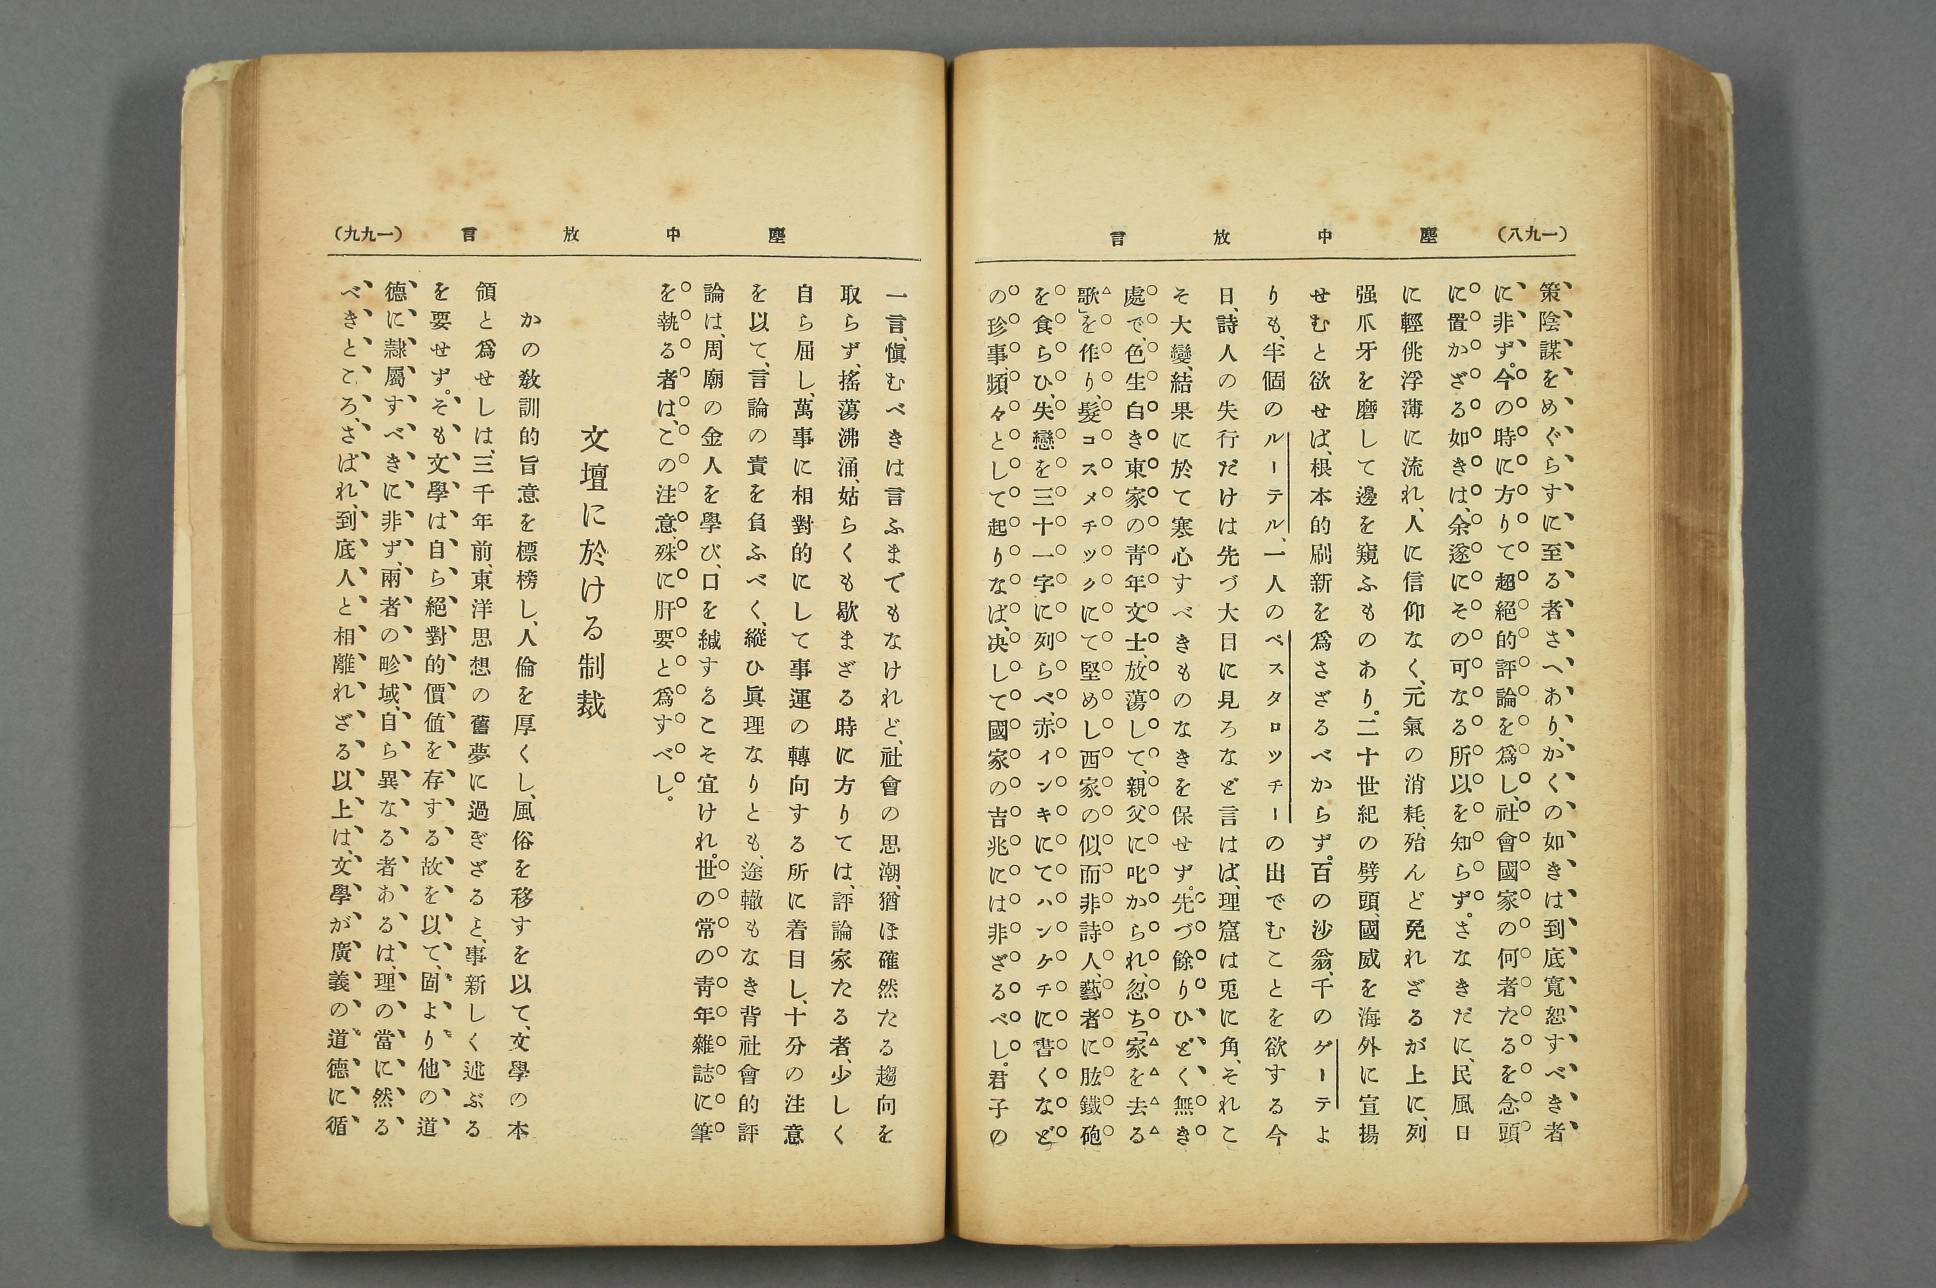 （一九八）　塵中放言
策陰謀をめぐらすに至る者さへあり、かくの如きは到底寬恕すべき者
に非ず。今の時に方りて超絕的評論を爲し、社會國家の何者たるを念頭
に置かざる如きは、余遂にその可なる所以を知らず。さなきだに、民風日
に輕佻浮薄に流れ、人に信仰なく、元氣の消耗、殆んど免れざるが上に、列
强爪牙を磨して邊を窺ふものあり。二十世紀の劈頭、國威を海外に宣揚
せむと欲せば、根本的刷新を爲さざるべからず。百の沙翁、千のゲーテよ
りも、半個のルーテル、一人のペスタロッチーの出でむことを欲する今
日、詩人の失行だけは先づ大目に見ろなど言はば、理窟は兎に角、それこ
そ大變、結果に於て寒心すべきものなきを保せず。先づ餘りひどく無き
處で、色生白き東家の靑年文士、放蕩して、親父に叱かられ、忽ち「家を去る
歌」を作り、髮コスメチックにて堅めし西家の似而非詩人、藝者に肱鐵砲
を食らひ、失戀を三十一字に列らべ、赤インキにてハンケチに書くなど
の珍事、頻々として起りなば、决して國家の吉兆には非ざるべし。君子の
塵中放言　（一九九）
一言、愼むべきは言ふまでもなけれど、社會の思潮、猶ほ確然たる趨向を
取らず、搖蕩沸涌、姑らくも歇まざる時に方りては、評論家たる者、少しく
自ら屈し、萬事に相對的にして事運の轉向する所に着目し、十分の注意
を以て、言論の責を負ふべく、縱ひ眞理なりとも、途轍もなき背社會的評
論は、周廟の金人を學び、口を緘するこそ宜けれ。世の常の靑年雜誌に筆
を執る者は、この注意、殊に肝要と爲すべし。
文壇に於ける制裁
かの敎訓的旨意を標榜し、人倫を厚くし、風俗を移すを以て、文學の本
領と爲せしは、三千年前、東洋思想の舊夢に過ぎざると、事新しく述ぶる
を要せず。そも文學は自ら絕對的價値を存する故を以て、固より他の道
德に隷屬すべきに非ず、兩者の畛域、自ら異なる者あるは、理の當に然る
べきところ、さばれ、到底人と相離れざる以上は、文學が廣義の道德に循